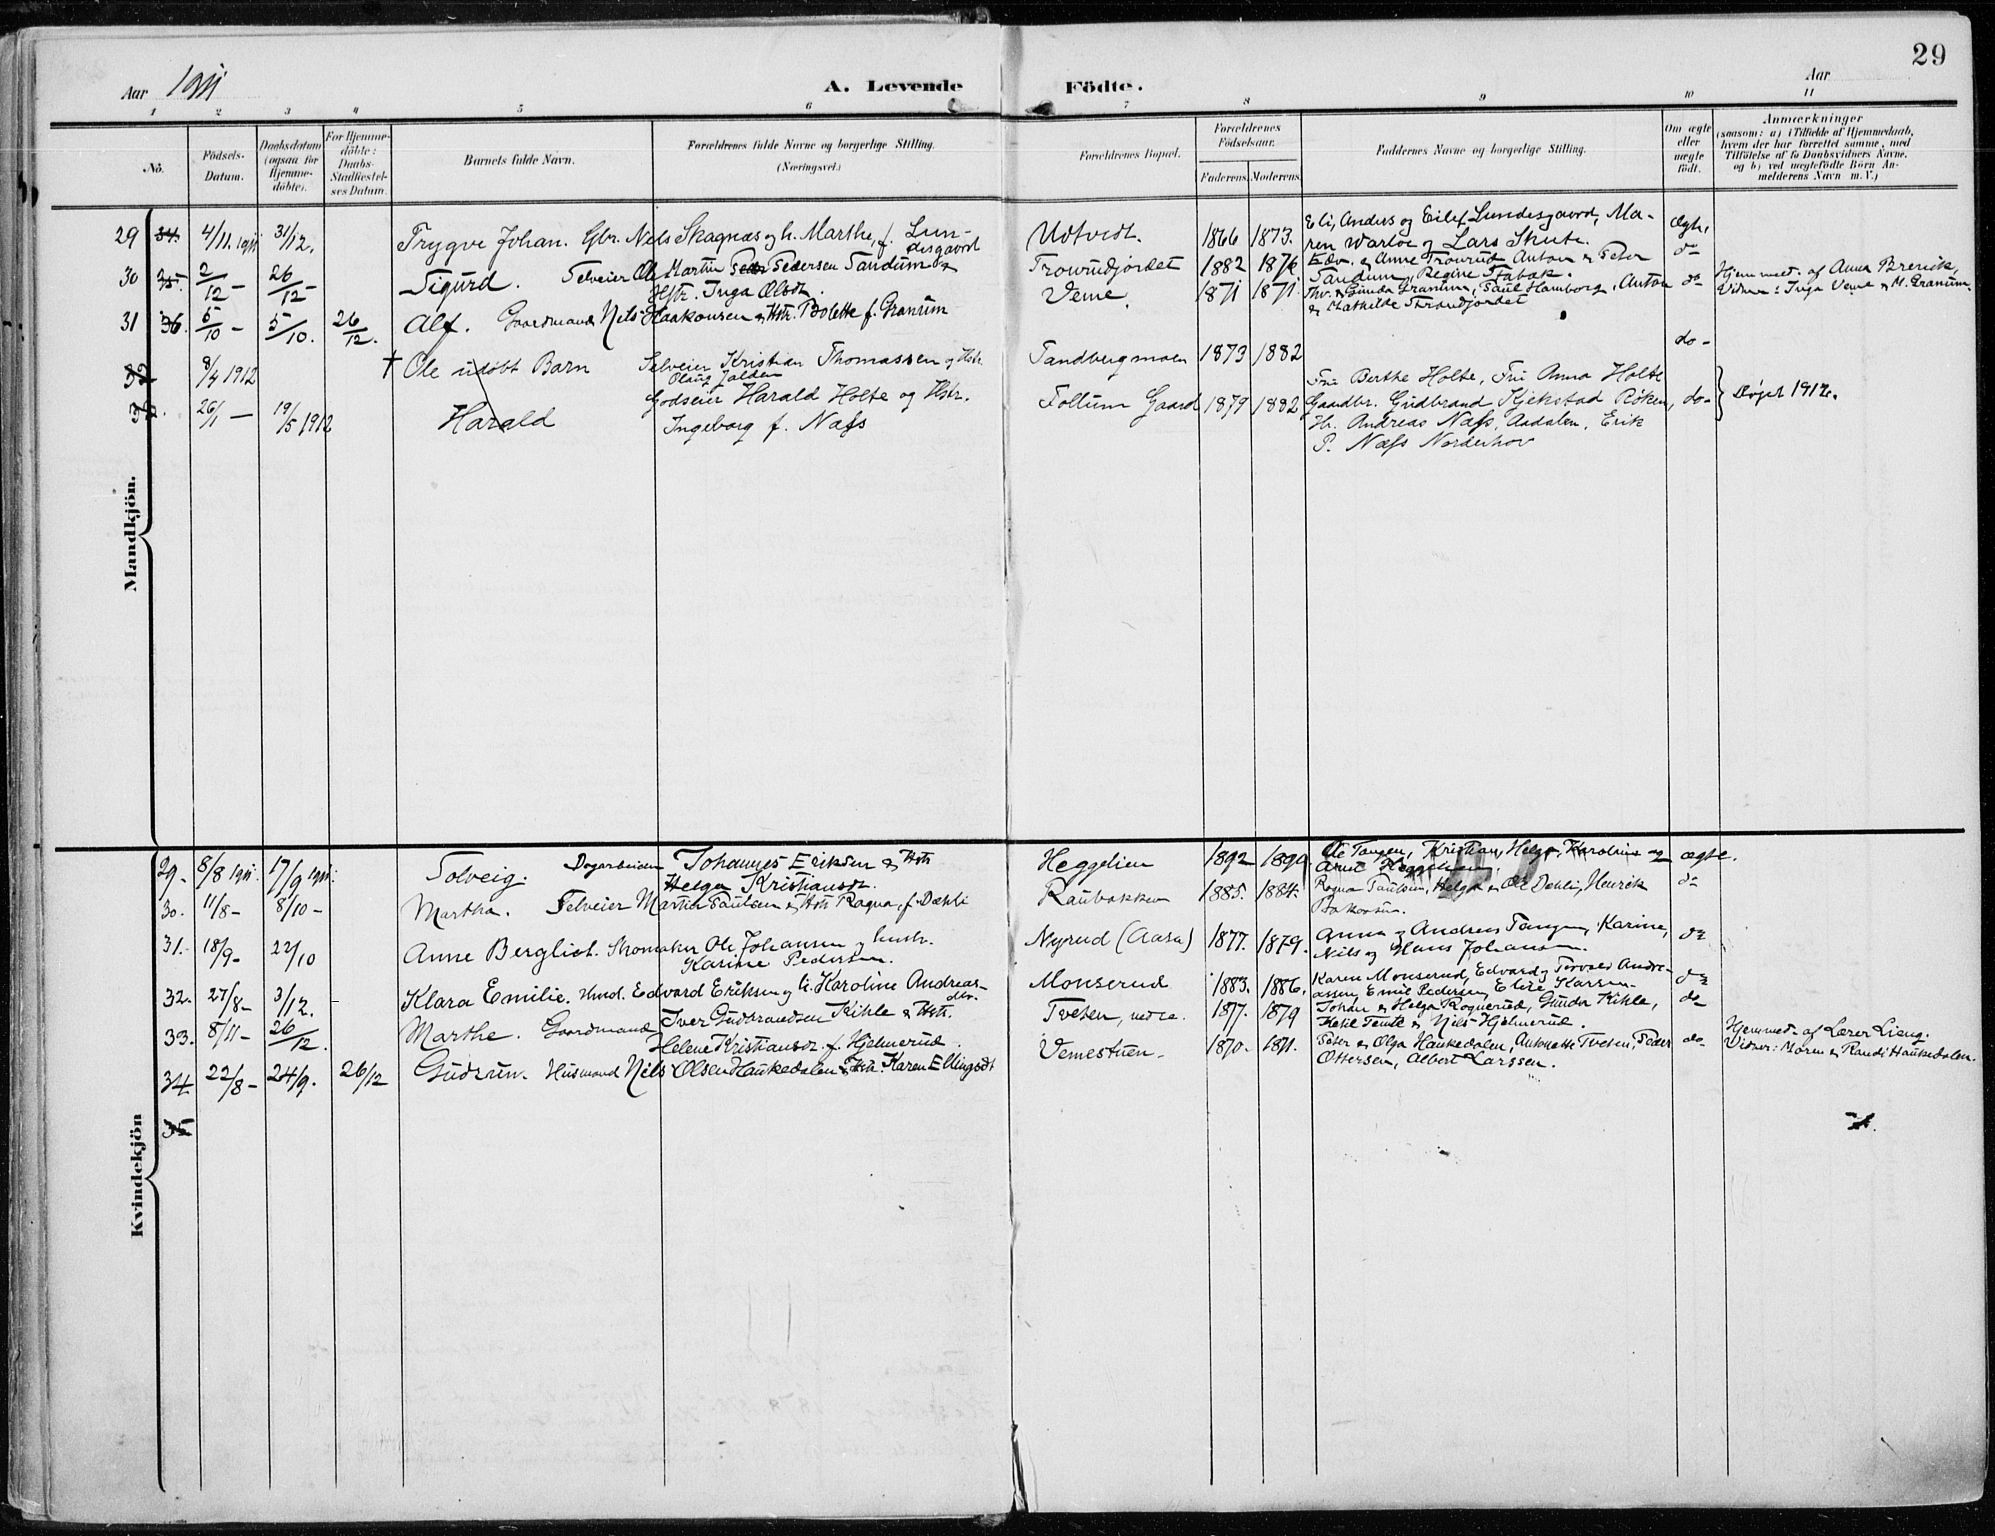 29
Aar 1911
A. Levende Födte.
Aar
1 2 3 4 5 6 7 8 9 10 11
No.
Födsels-Datum.
Daabsdatum (ogsaa for Hjemmedöbte).
For Hjemmedöbte: Daabs-Stadfæstelses Datum.
Barnets fulde Navn.
Forældrenes fulde Navne og borgerlige Stilling. (Næringsvei.)
Forældrenes Bopæl.
Forældrenes Födselsaar.
Faderens. Moderens.
Faddernes Navne og borgerlige Stilling.
Om ægte eller uægte födt.
Anmærkninger
(saasom: a) i Tilfælde af Hjemmedaab, hvem der har forrettet samme, med Tilföielse af to Daabsvidners Navne, og b) ved uægtefödte Börn Anmelderens Navn m. V.)
Mandkjön.
29 34. 4/11. 1911 31/12. Trygve Johan. Gbr. Nels Skagnæs og h. Marthe, f. Lundesgaard Udtvedt. 1866 1873. Eli, Anders og Eilef Lundesgaard, Maren Warloe og Lars Skute. Ægte,
30 35. 2/12 - 26/12 - Sigurd. Selveier Ole Martin Pedersen Tandum & Hstr. Inga Olsdt. Trovrudjordet 1882 1876 Edv. & Anne Trovrud Anton & Peter Tandum, Regine Stabak. do
31 36. 5/10 - 5/10. 26/12. Alf. Gaardmand Nils Haakonsen & Hstr. Bolette f. Granum Veme 1871 1871 Thv. & Gunda Granum, Paul Hamborg, Anton & Mathilde Strandjordet do Hjemmed. af Anna Brerick, Vidner: Inga Veme & M. Granum.
32 8/4 1912 † Ole udöbt Barn Selveier Kristian Thomassen og Hstr. Olaug Jalden Tandbergmoen 1873 1882 do -
26/1 - 19/5 1912 Harald Godseier Harald Holte og Hstr. Ingeborg f. Næss Follum Gaard 1879 1882 Fru Berthe Holte, Fru Anna Holte Gaardbr. Gudbrand Kjekstad Röken, Hr. Andreas Næss, Aadalen, Erik P. Næss Norderhov do - 1912.
Kvindekjön
29. 8/8 1911. 17/9 1911. Solveig. Dagarbeider Johannes Eriksen & Hstr. Helga Kristiansdt. Heggelien 1892 Ole Tangen, Kristian, Helga, Karoline og Heggelien. ægte.
30. 11/8 - 8/10 - Martha. Selveier Martin Paulsen & Hstr Ragna, f. Dæhli Raubakken 1885. 1884. Ragna Paulsen, Helga & Ole Dæhli, Henrik do
31. 18/9 - 22/10 Anne Bergliot. Skomaker Ole Johansen og hustr. Karine Pedersen. Nyrud (Aasa) 1877. 1879. Anna og Andreas Tangen, Karine, Nils og Hans Johansen. do
32. 27/8 - 3/12. - Klara Emilie. Hmd. Edvard Eriksen og h. Karoline Andreasdtr. Monserud 1883. 1886. Karen Monserud, Edvard og Torvald Andreassen, Emil Pedersen, Elise Karsen do
33. 8/11 - 26/12. Marthe. Gaardmand Iver Gudbrandsen Kihle & Hstr. Helene Kristiansdt. f. Hjelmerud. Tveten, nedre. 1877. 1879 Johan & Helga Rognerud, Gunda Kihle, Ketil Tente & Nils Hjelmerud. do
34 22/8 - 24/9. 26/12 Gudrun. Husmand Nils Olsen Haukedalen & Hstr. Karen Ellingsdt Vemestuen. 1870. 1871. Peter & Olga Haukedalen, Antonette Tveten, Peder Ottersen, Albert Larssen. do - Hjemmed. af Lærer Lieng. Vidner: Moren & Randi Haukedalen.
35